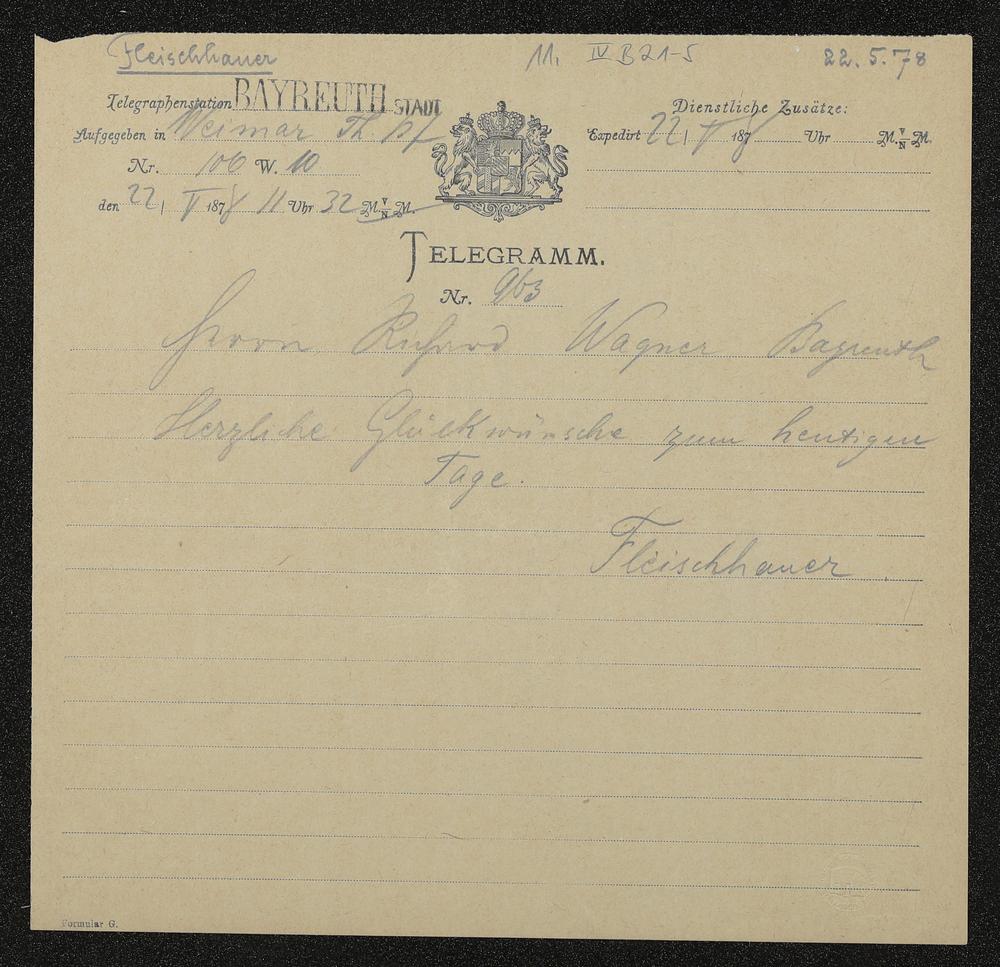 Fleischhauer
11. IV B 21-5
22.5.78
Telegraphenstation BAYREUTH STADT
Aufgegeben in Weimar Th.
Nr. 106 W. 10
den 22/ V 1878 11 Uhr 32 M. V/N M.
Dienstliche Zusätze:
Expedirt 22/ V 1878 Uhr M. V/N M.
TELEGRAMM.
Nr. 963
Herrn Richard Wagner Bayreuth
Herzliche Glückwünsche zum heutigen
Tage.
Fleischhauer
Formular G.